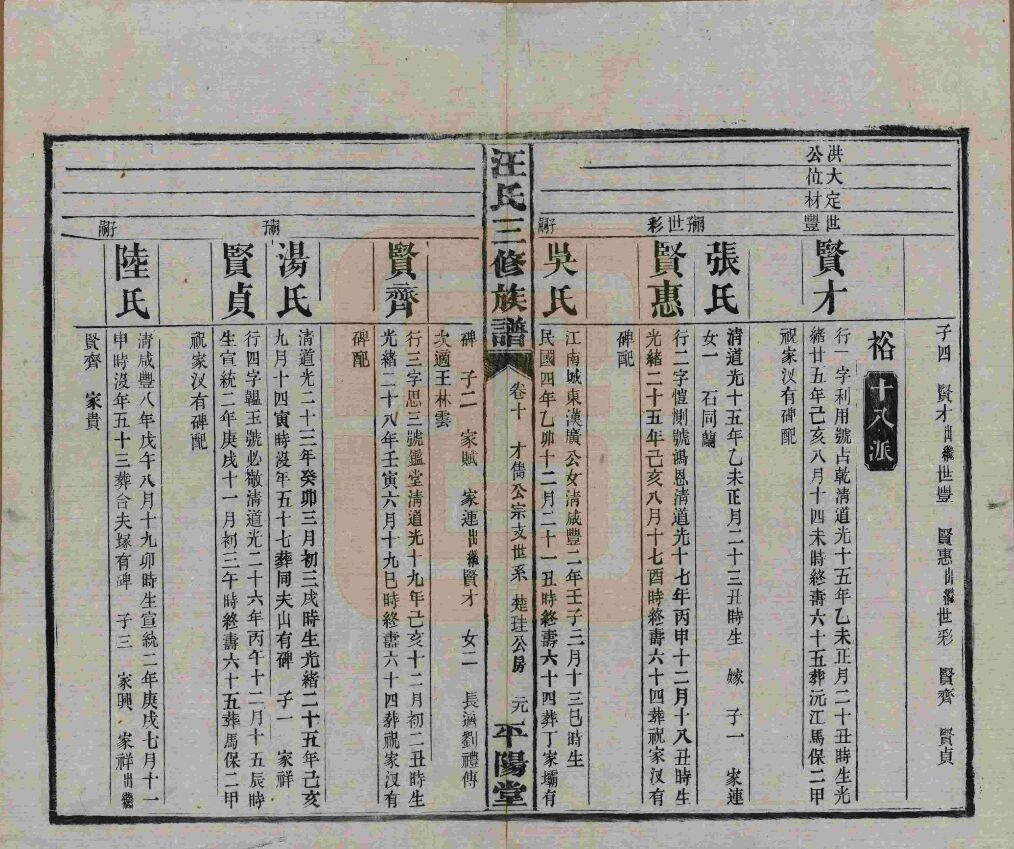 洪大定世
公位材豐
子四 賢才出繼世豐 賢惠出繼世彩 賢齊 賢貞
裕
十八派
賢才
行一字利用號占乾清道光十五年乙未正月二十丑時生光
緒廿五年己亥八月十四未時終壽六十五葬沅江馬保二甲
祝家汊有碑配
張氏
清道光十五年乙未正月二十三丑時生 嫁 子一 家連
女一 石同蘭
嗣子世彩
賢惠
行二字愷惻號鴻恩清道光十七年丙申十二月十八丑時生
光緒二十五年己亥八月十七酉時終壽六十四葬祝家汊有
碑配
吳氏
江南城東漢廣公女清咸豐二年壬子三月十三巳時生
民國四年乙卯十二月二十一丑時終壽六十四葬丁家壩有
汪氏三修族譜
卷十 才儒公宗支世系 楚珪公房 元
平陽堂
碑 子二 家賦 家連出繼賢才 女二 長適劉禮傳
次適王林雲
賢齊
行三字思三號鑑堂清道光十九年己亥十二月初二丑時生
光緒二十八年壬寅六月十九巳時終壽六十四葬祝家汊有
碑配
湯氏
清道光二十三年癸卯三月初三戌時生光緒二十五年己亥
九月十四寅時沒年五十七葬同夫山有碑 子一 家祥
賢貞
行四字韞玉號必徵清道光二十六年丙午十二月十五辰時
生宣統二年庚戌十一月初三午時終壽六十五葬馬保二甲
祝家汊有碑配
陸氏
清咸豐八年戊午八月十九卯時生宣統二年庚戌七月十一
申時沒年五十三葬合夫塚有碑 子三 家興 家祥出繼
賢齊 家貴